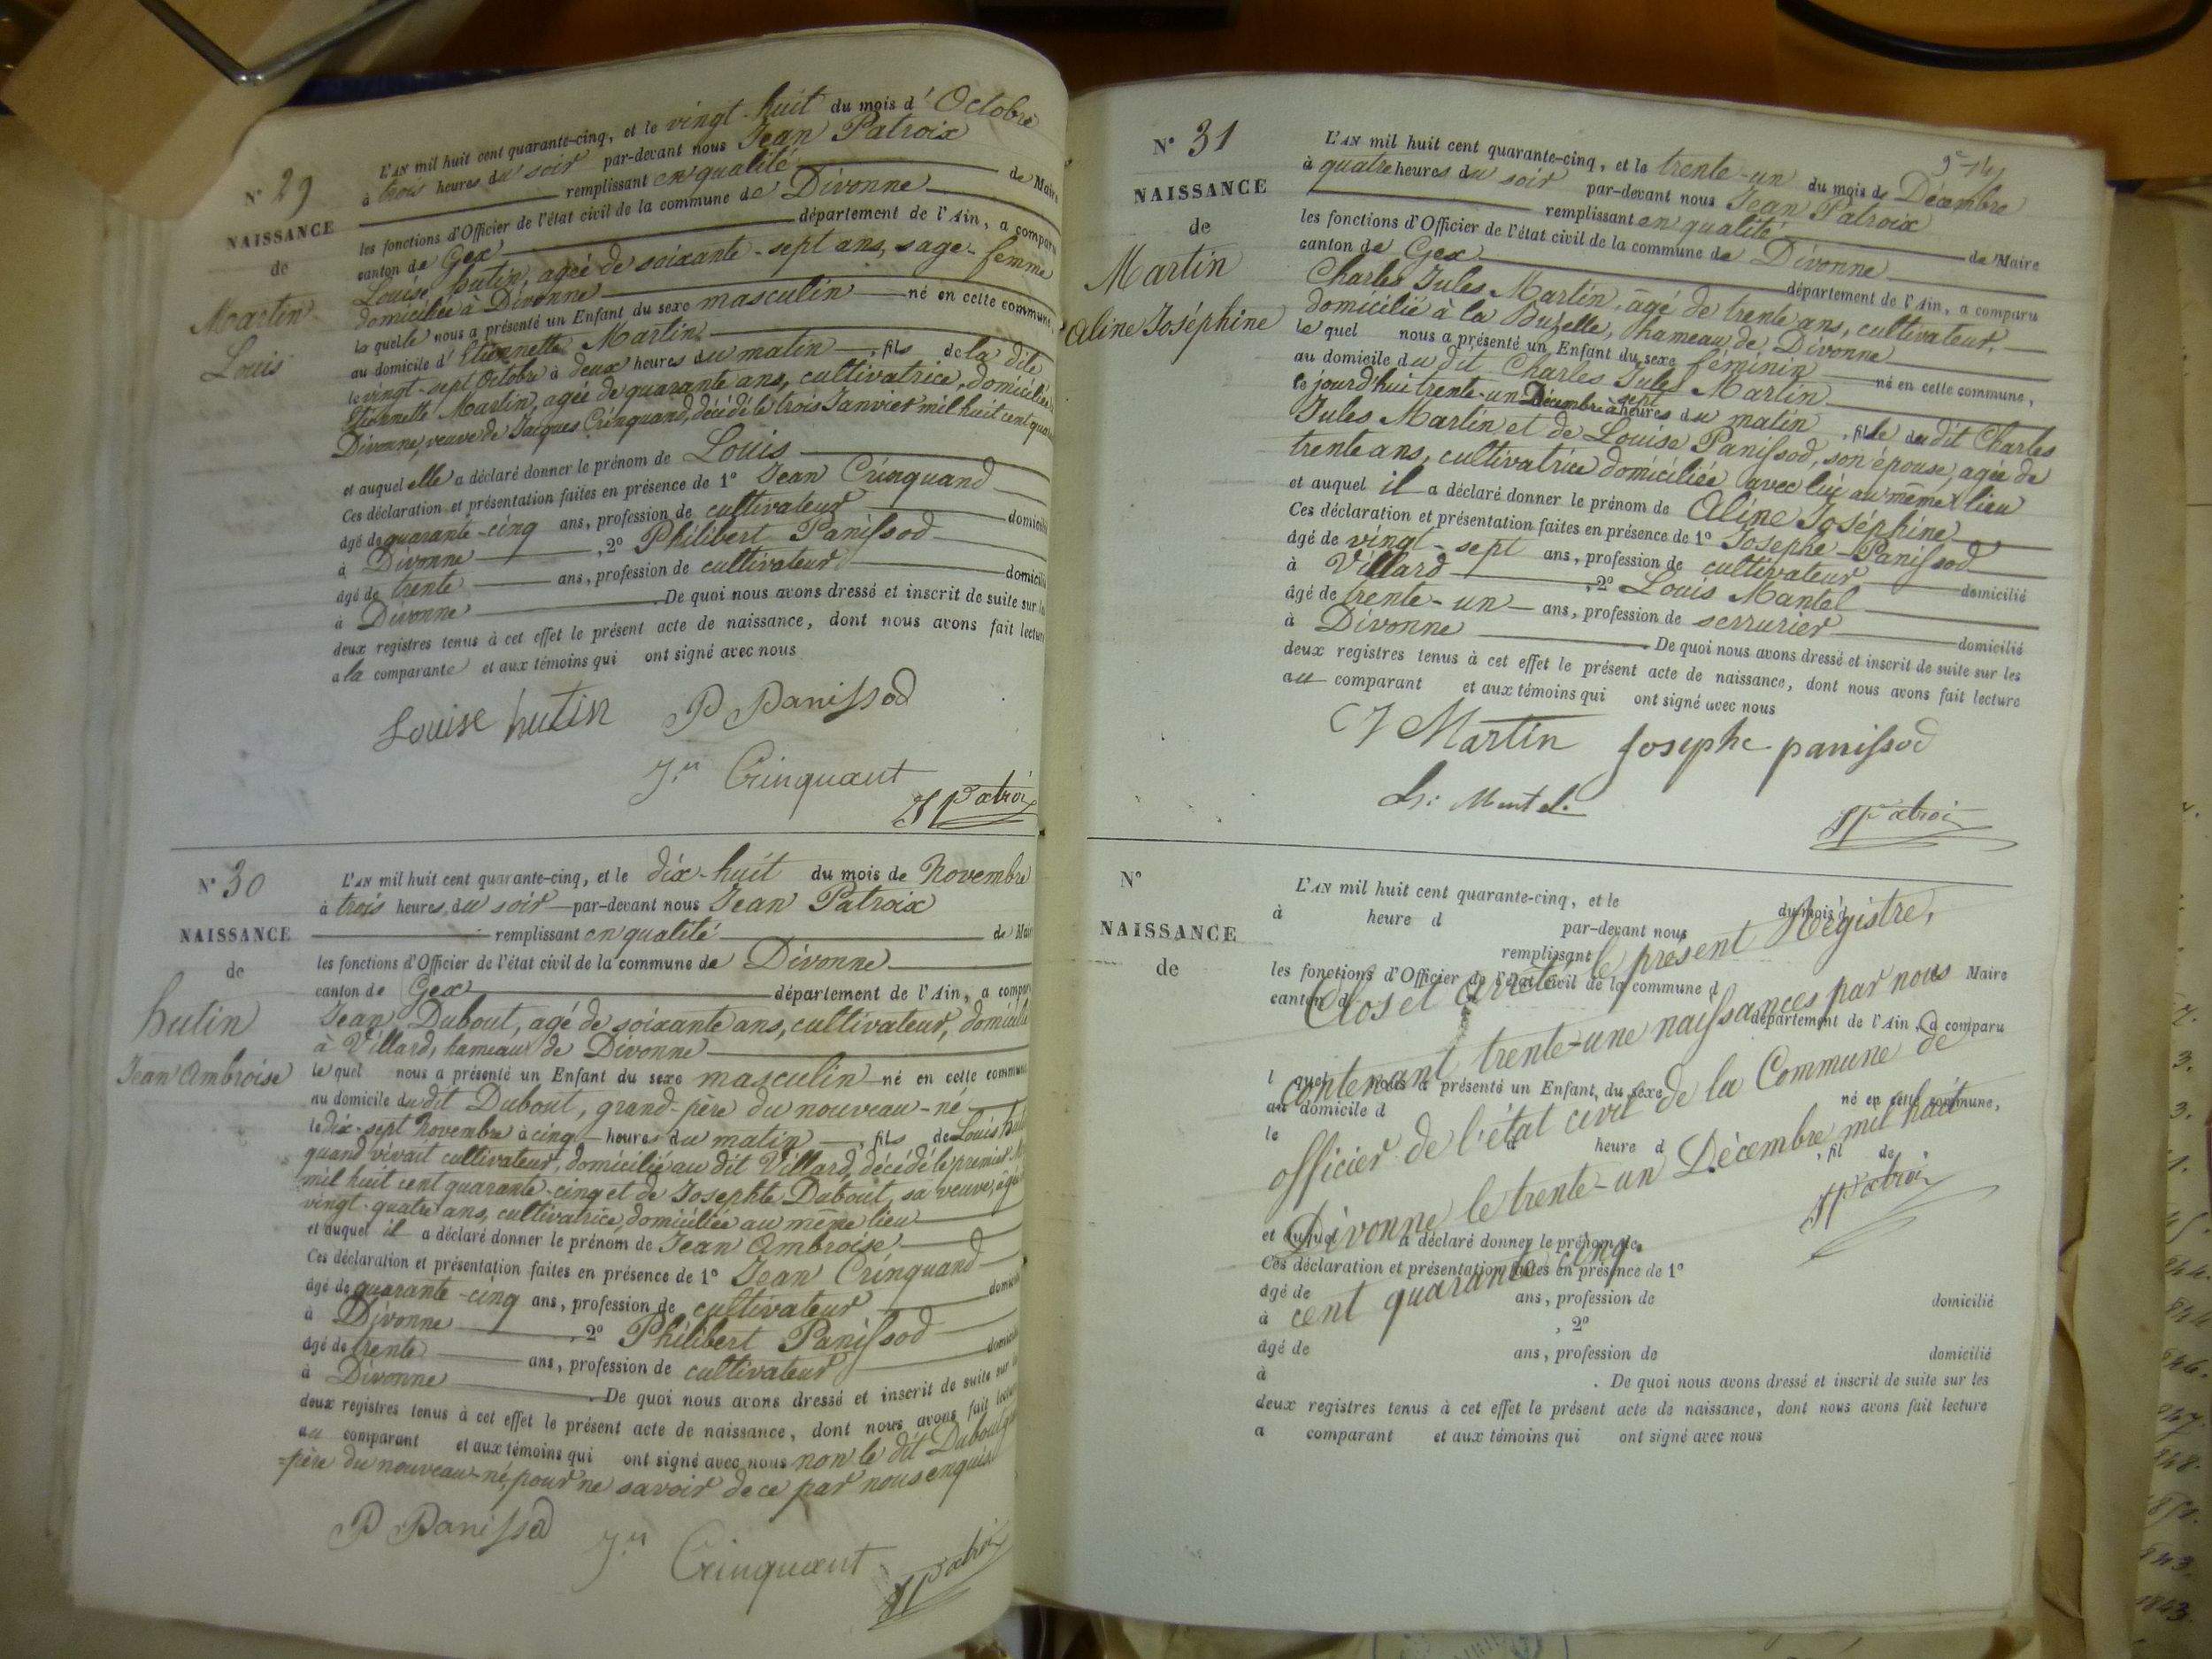 N° 29
NAISSANCE
de
Martin
Louis
L'AN mil huit cent quarante-cinq, et le vingt-huit du mois d'Octobre
à trois heures du soir par-devant nous Jean Patroix
remplissant en qualité de Maire
les fonctions d'Officier de l'état civil de la commune de Divonne
canton de Gex département de l'Ain, a comparu
Louise hutin, agée de soixante-sept ans, sage-femme
domiciliée à Divonne
la quelle nous a présenté un Enfant du sexe masculin né en cette commune,
au domicile d'Etiennette Martin
le vingt-sept Octobre à deux heures du matin, fils de la dite
Etiennette Martin, agée de quarante ans, cultivatrice, domiciliée
Divonne, veuve de Jacques Crinquand, décédé le trois Janvier mil huit cent
et auquel elle a déclaré donner le prénom de Louis
Ces déclaration et présentation faites en présence de 1° Jean Crinquand
âgé de quarante-cinq ans, profession de cultivateur domicilié
à Divonne, 2° Philibert Panissod
âgé de trente ans, profession de cultivateur domicilié
à Divonne. De quoi nous avons dressé et inscrit de suite sur
deux registres tenus à cet effet le présent acte de naissance, dont nous avons fait lecture
a la comparante et aux témoins qui ont signé avec nous
Louise hutin P Panissod
Jn Crinquant
J Patroix
N° 30
NAISSANCE
de
hutin
Jean Ambroise
L'AN mil huit cent quarante-cinq, et le dix-huit du mois de Novembre
à trois heures du soir par-devant nous Jean Patroix
remplissant en qualité de
les fonctions d'Officier de l'état civil de la commune de Divonne
canton de Gex département de l'Ain, a
Jean Dubout, agé de soixante ans, cultivateur, domicilié
à Villard, hameau de Divonne
le quel nous a présenté un Enfant du sexe masculin né en cette
au domicile du dit Dubout, grand-père du nouveau-né
le dix-sept Novembre à cinq heures du matin, fils de Louis
quand vivait cultivateur, domicilié au dit Villard, décédé le premier
mil huit cent quarante-cinq et de Josephte Dubout, sa veuve,
vingt-quatre ans, cultivatrice, domiciliée au même lieu
et auquel il a déclaré donner le prénom de Jean Ambroise
Ces déclaration et présentation faites en présence de 1° Jean Crinquand
âgé de quarante-cinq ans, profession de cultivateur
à Divonne, 2° Philibert Panissod
âgé de trente ans, profession de cultivateur
à Divonne. De quoi nous avons dressé et inscrit de suite sur
deux registres tenus à cet effet le présent acte de naissance, dont nous avons fait
au comparant et aux témoins qui ont signé avec nous non le dit Dubout
=père du nouveau-né, pour ne savoir de ce par nous enquis
P Panissod Jn Crinquant
J Patroix
N° 31
NAISSANCE
de
Martin
Aline Joséphine
L'AN mil huit cent quarante-cinq, et le trente-un du mois de Décembre
à quatre heures du soir par-devant nous Jean Patroix
remplissant en qualité de Maire
les fonctions d'Officier de l'état civil de la commune de Divonne
canton de Gex département de l'Ain, a comparu
Charles Jules Martin, âgé de trente ans, cultivateur,
domicilié à la hameau de Divonne
le quel nous a présenté un Enfant du sexe féminin né en cette commune,
au domicile du dit Charles Jules Martin
le jourd'hui trente-un Décembre à sept heures du matin, fille du dit Charles
Jules Martin et de Louise Panissod, son épouse, agée de
trente ans, cultivatrice domiciliée avec lui au même lieu
et auquel il a déclaré donner le prénom de Aline Joséphine
Ces déclaration et présentation faites en présence de 1° Josephe Panissod
âgé de vingt-sept ans, profession de cultivateur domicilié
à Villard, 2° Louis Mantel
âgé de trente-un ans, profession de serrurier domicilié
à Divonne. De quoi nous avons dressé et inscrit de suite sur les
deux registres tenus à cet effet le présent acte de naissance, dont nous avons fait lecture
au comparant et aux témoins qui ont signé avec nous
CJ Martin Josephe panissod
Ls: Mantel
J Patroix
N°
NAISSANCE
de
L'AN mil huit cent quarante-cinq, et le du mois d
à heure d par-devant nous
remplissant
les fonctions d'Officier de l'état civil de la commune d Maire
canton d département de l'Ain, a comparu
l quel nous a présenté un Enfant du sexe né en cette commune,
au domicile d
le à heure d, fil de
et auquel a déclaré donner le prénom de
Ces déclaration et présentation faites en présence de 1°
âgé de ans, profession de domicilié
à , 2°
âgé de ans, profession de domicilié
à . De quoi nous avons dressé et inscrit de suite sur les
deux registres tenus à cet effet le présent acte de naissance, dont nous avons fait lecture
a comparant et aux témoins qui ont signé avec nous
Clos et arrêté le présent Régistre,
contenant trente-une naissances par nous
officier de l'état civil de la Commune de
Divonne le trente-un Décembre mil huit
cent quarante-cinq.
J Patroix